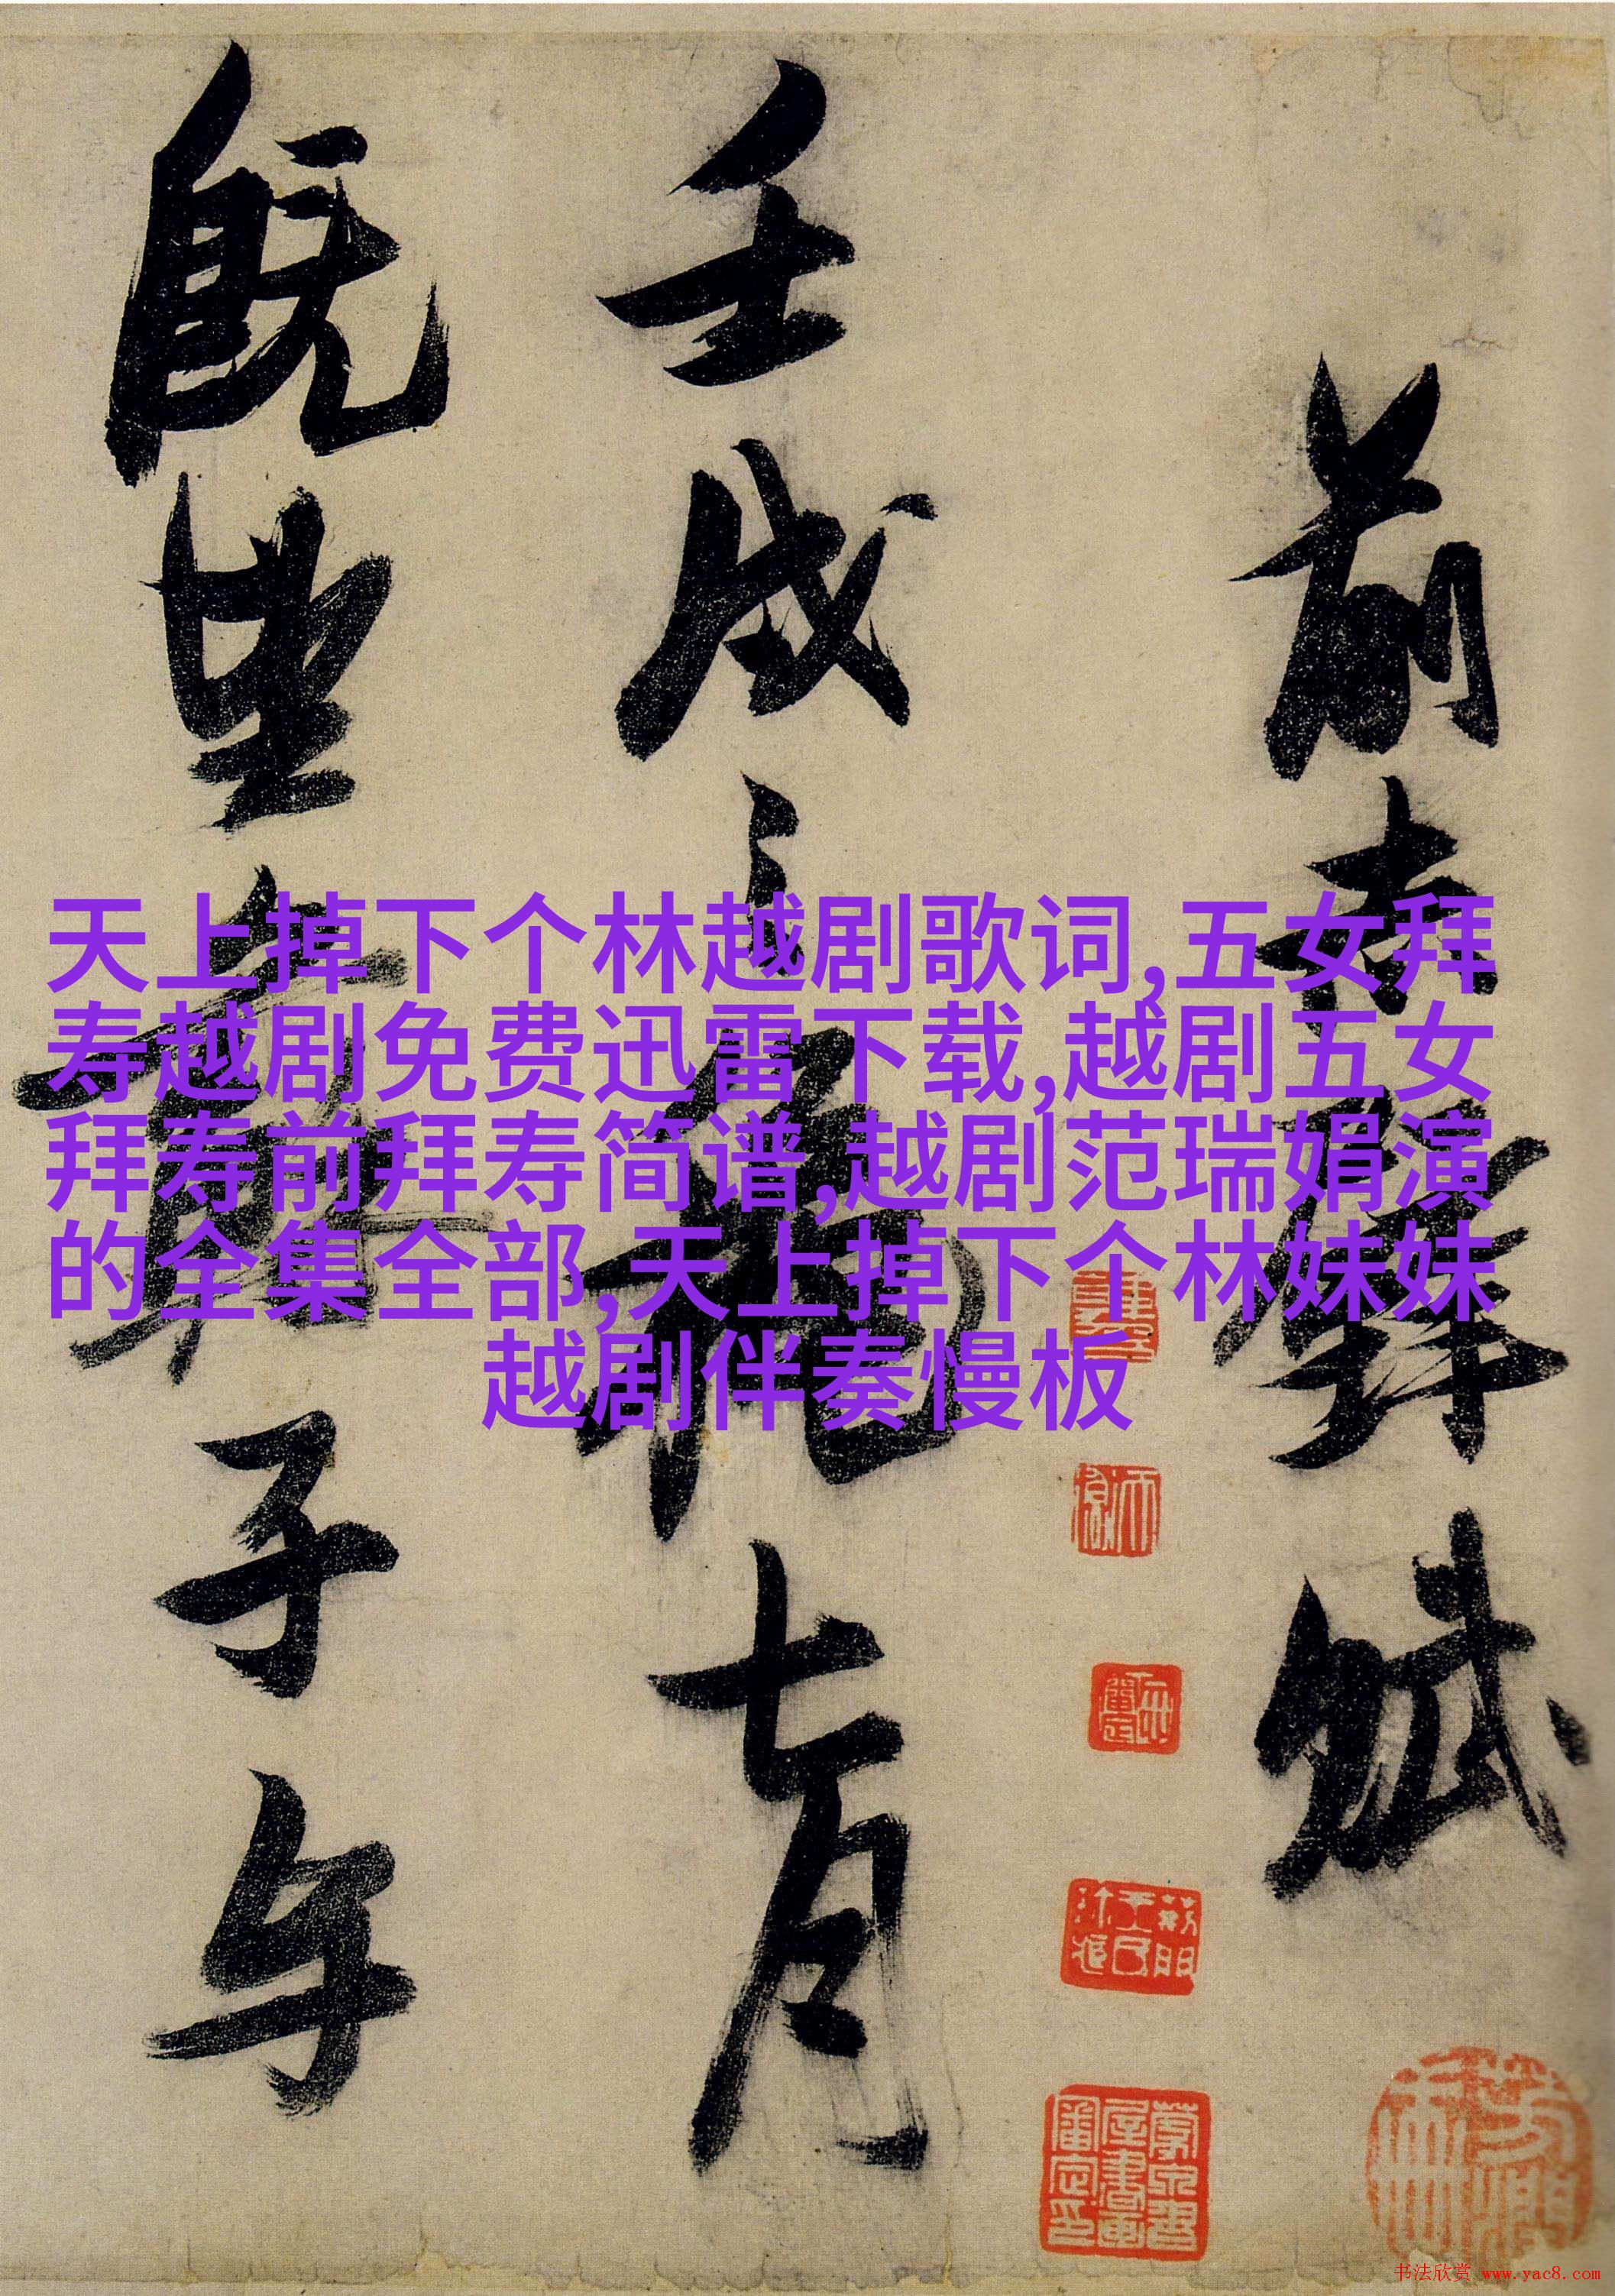 前赤壁賦
壬戌之秋七月
既望蘇子与
天上掉下个林越剧歌词,五女拜
寿越剧免费迅雷下载,越剧五女
拜寿前拜寿简谱,越剧范瑞娟演
的全集全部,天上掉下个林妹妹
越剧伴奏慢板
书法欣赏 www.yac8.com